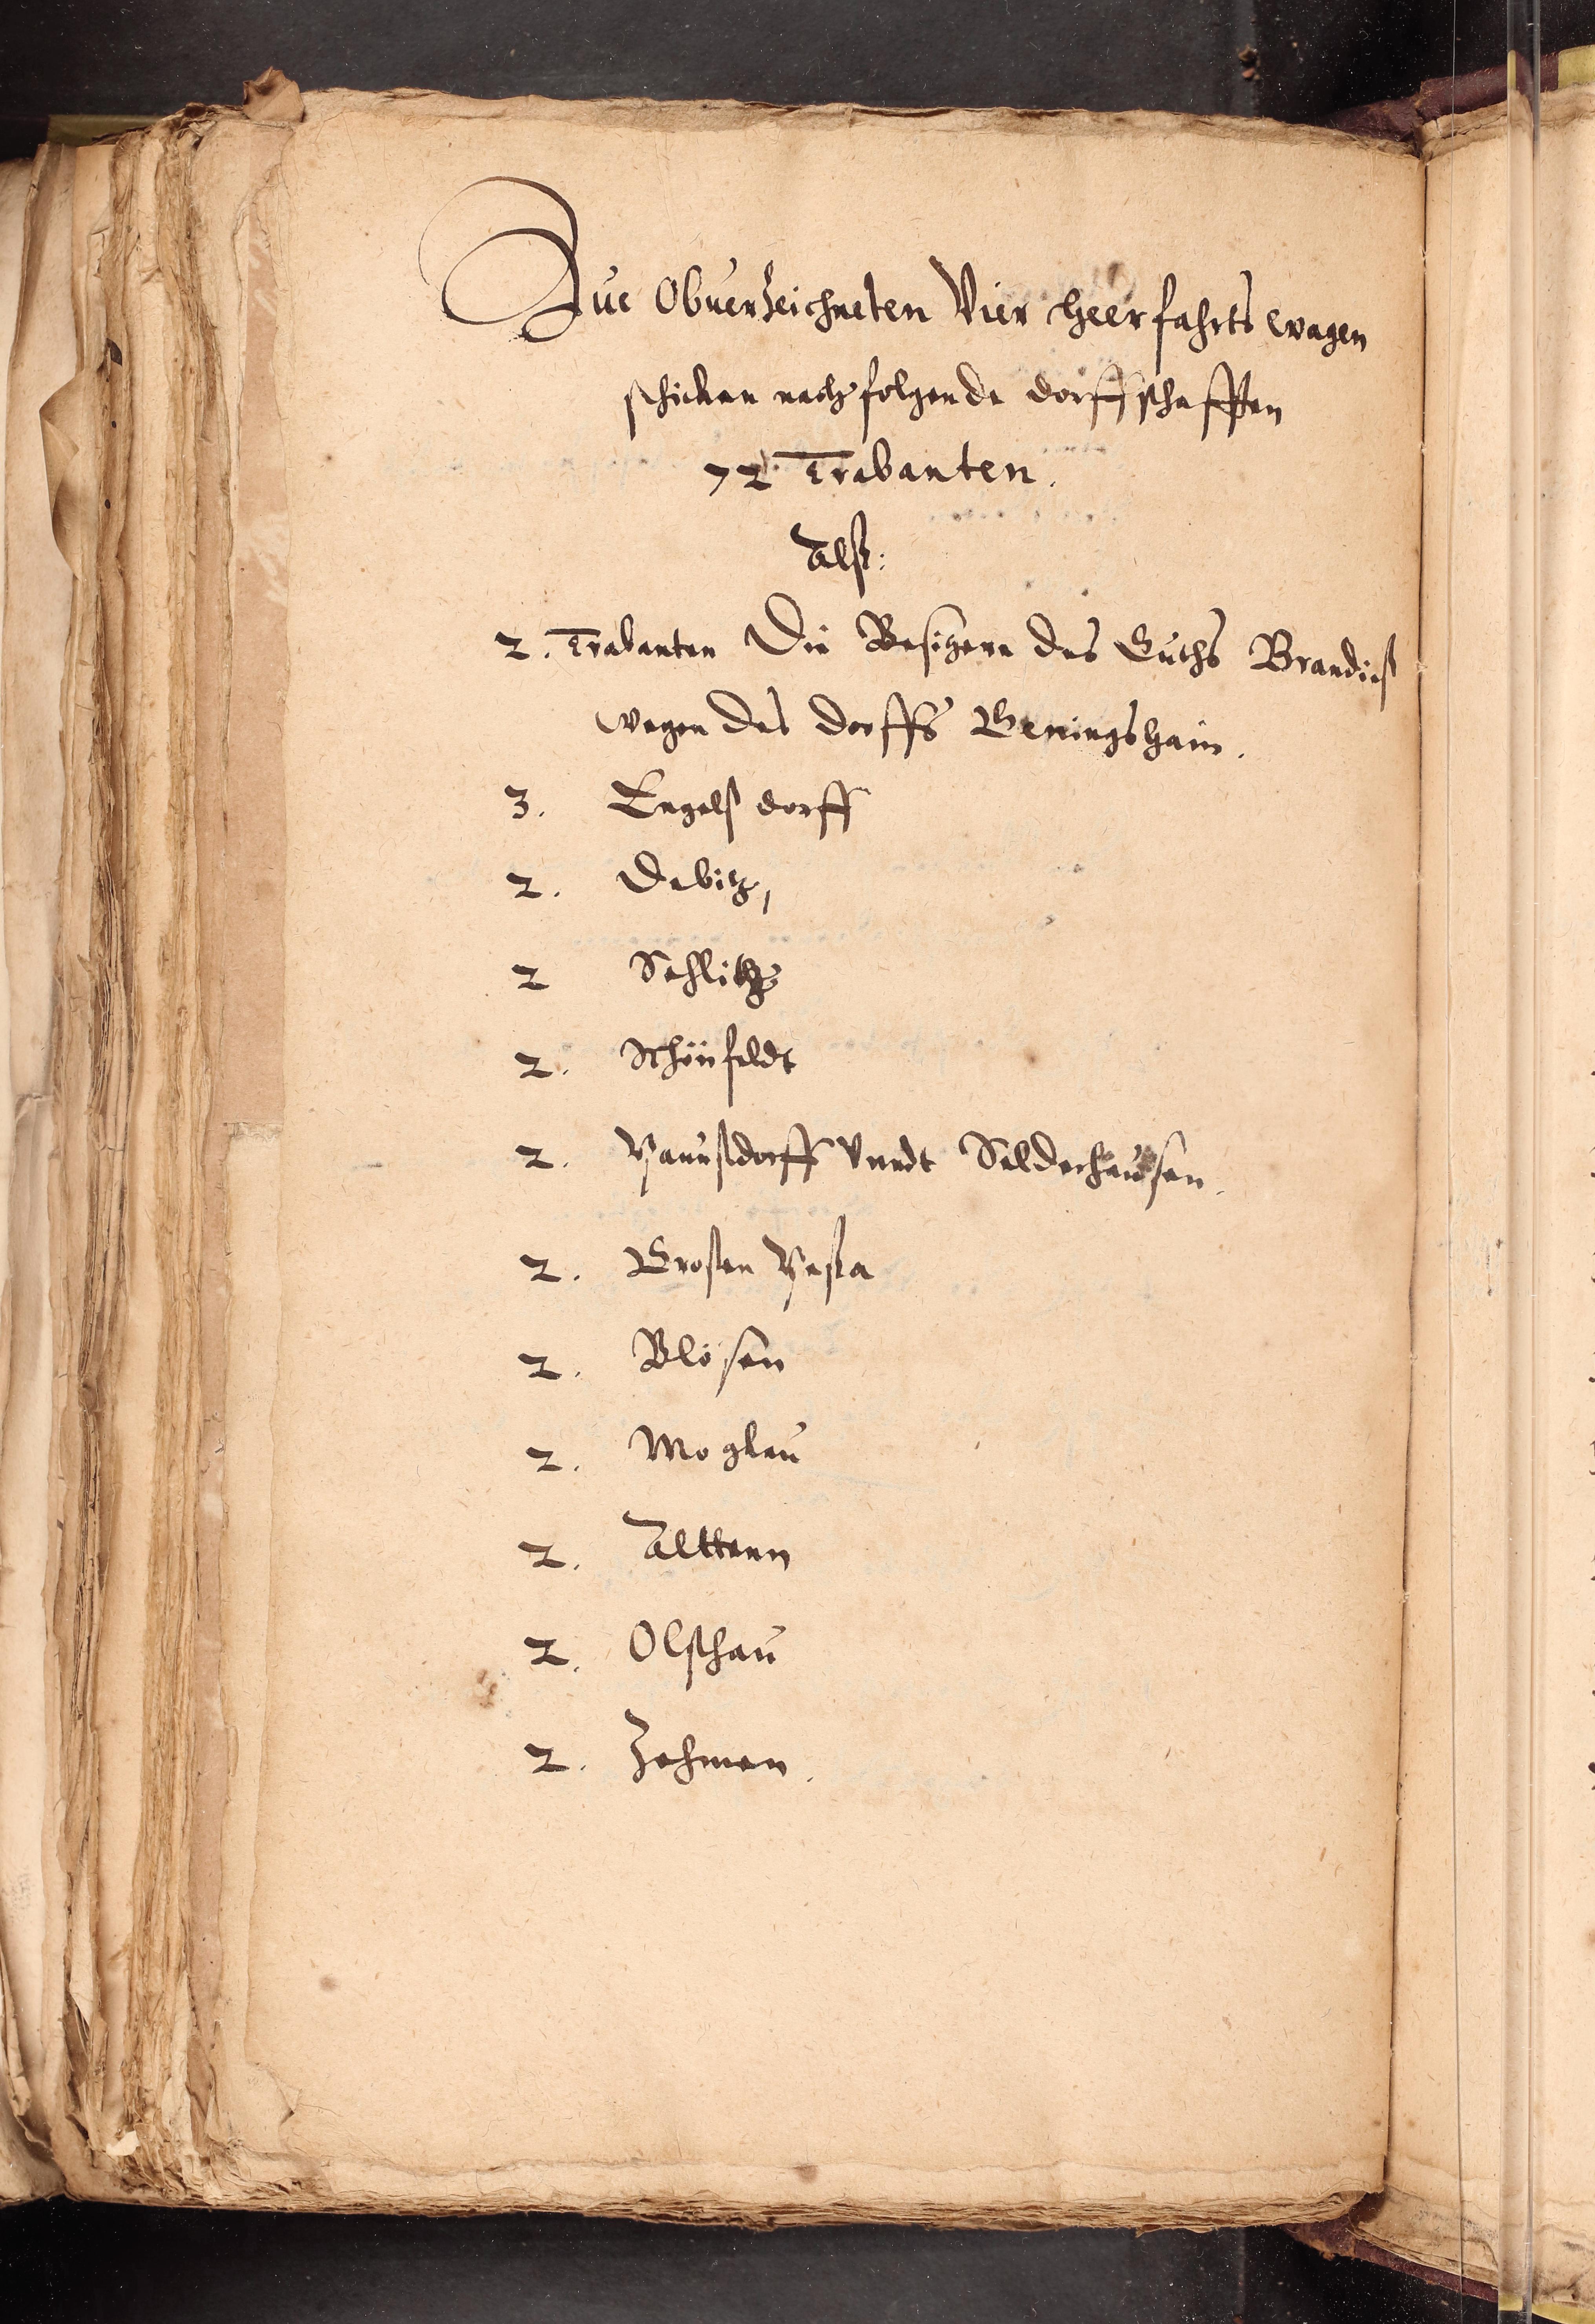 Zue Obuerzeichneten Vier heerfahrts wagen
schicken nachfolgende dorffschafften
72 Trabanten.
Alß:
2. Trabanten Die Besitzere des Guths Brandiß
wegen des dorffs Gerningshain.
3. Engelßdorff
2. Debitz,
2 Sehlitz
2. Schönfeldt
2. Paunßdorff Vnndt Selderhausen.
2. Großen Peßa
2. Blösen
2. Mogkau
2. Alttenn
2. Olschau
2. Zehmen.